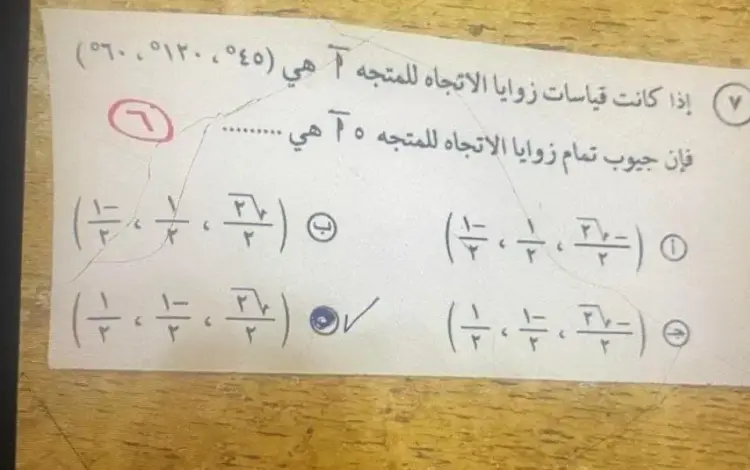 ٧ إذا كانت قياسات زوايا الاتجاه للمتجه أ هي (٤٥°، ١٢٠°، ٦٠°)
فإن جيوب تمام زوايا الاتجاه للمتجه ٥ أ هي .........
٦
أ (-√٢/٢ ، ١/٢ ، -١/٢)
ب (√٢/٢ ، ١/٢ ، -١/٢)
ج (-√٢/٢ ، -١/٢ ، ١/٢)
(√٢/٢ ، -١/٢ ، ١/٢)